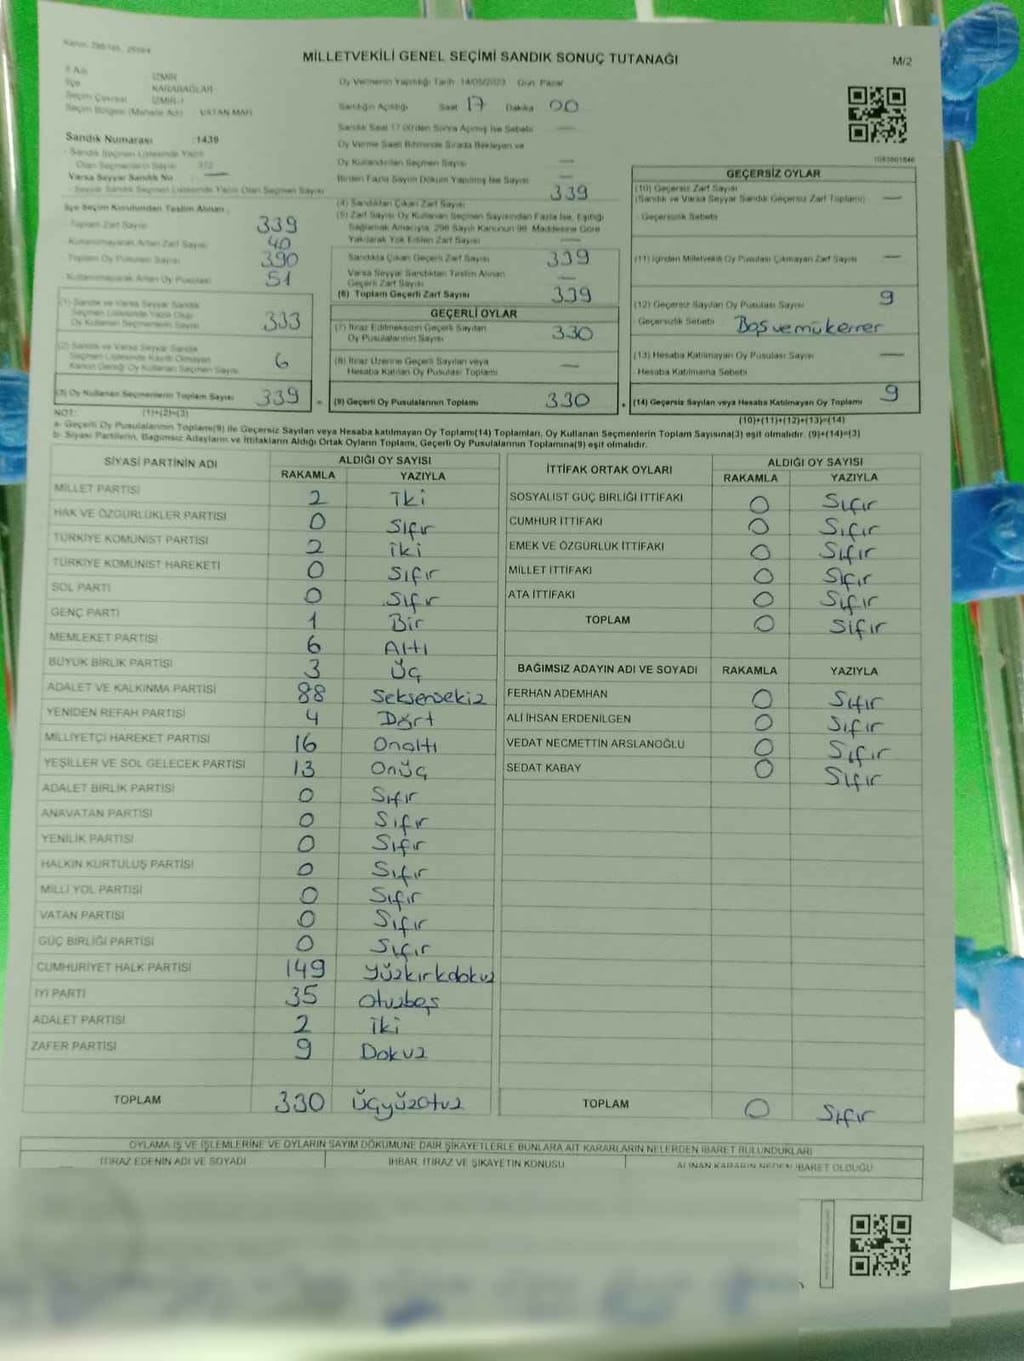 MİLLETVEKİLİ GENEL SEÇİMİ SANDIK SONUÇ TUTANAĞI
M/2
İl Adı İZMİR
İlçe KARABAĞLAR
Seçim Çevresi İZMİR-1
Seçim Bölgesi (Mahalle Adı) VATAN MAH
Oy Vermenin Yapıldığı Tarih 14/05/2023 Gün Pazar
Sandığın Açıldığı Saat 17 Dakika 00
Sandık Saat 17:00'den Sonra Açılmış İse Sebebi —
Oy Verme Saati Bitiminde Sırada Bekleyen ve
Oy Kullandırılan Seçmen Sayısı —
Birden Fazla Sayım Döküm Yapılmış İse Sayısı —
Sandık Numarası :1439
Sandık Seçmen Listesinde Yazılı
Olan Seçmenlerin Sayısı 372
Varsa Seyyar Sandık No —
Seyyar Sandık Seçmen Listesinde Yazılı Olan Seçmen Sayısı
İlçe Seçim Kurulundan Teslim Alınan
Toplam Zarf Sayısı 339
Kullanılmayarak Artan Zarf Sayısı 40
Toplam Oy Pusulası Sayısı 390
Kullanılmayarak Artan Oy Pusulası 51
(1) Sandık ve Varsa Seyyar Sandık
Seçmen Listesinde Yazılı Olup
Oy Kullanan Seçmenlerin Sayısı 333
(2) Sandık ve Varsa Seyyar Sandık
Seçmen Listesinde Kayıtlı Olmayan
Kanun Gereği Oy Kullanan Seçmen Sayısı 6
(3) Oy Kullanan Seçmenlerin Toplam Sayısı 339
(1)+(2)=(3)
(4) Sandıktan Çıkan Zarf Sayısı 339
(5) Zarf Sayısı Oy Kullanan Seçmen Sayısından Fazla İse, Eşitliği
Sağlamak Amacıyla, 298 Sayılı Kanunun 98. Maddesine Göre
Yakılarak Yok Edilen Zarf Sayısı —
Sandıkta Çıkan Geçerli Zarf Sayısı 339
Varsa Seyyar Sandıktan Teslim Alınan
Geçerli Zarf Sayısı —
(6) Toplam Geçerli Zarf Sayısı 339
GEÇERLİ OYLAR
(7) İtiraz Edilmeksizin Geçerli Sayılan
Oy Pusulalarının Sayısı 330
(8) İtiraz Üzerine Geçerli Sayılan veya
Hesaba Katılan Oy Pusulası Toplamı —
(9) Geçerli Oy Pusulalarının Toplamı 330
GEÇERSİZ OYLAR
(10) Geçersiz Zarf Sayısı
(Sandık ve Varsa Seyyar Sandık Geçersiz Zarf Toplamı) —
Geçersizlik Sebebi
(11) İçinden Milletvekili Oy Pusulası Çıkmayan Zarf Sayısı —
(12) Geçersiz Sayılan Oy Pusulası Sayısı 9
Geçersizlik Sebebi Boş ve mükerrer
(13) Hesaba Katılmayan Oy Pusulası Sayısı —
Hesaba Katılmama Sebebi
(14) Geçersiz Sayılan veya Hesaba Katılmayan Oy Toplamı 9
(10)+(11)+(12)+(13)=(14)
NOT:
a- Geçerli Oy Pusulalarının Toplamı(9) ile Geçersiz Sayılan veya Hesaba katılmayan Oy Toplamı(14) Toplamları, Oy Kullanan Seçmenlerin Toplam Sayısına(3) eşit olmalıdır. (9)+(14)=(3)
b- Siyasi Partilerin, Bağımsız Adayların ve İttifakların Aldığı Ortak Oyların Toplamı, Geçerli Oy Pusulalarının Toplamına(9) eşit olmalıdır.
SİYASİ PARTİNİN ADI ALDIĞI OY SAYISI
RAKAMLA YAZIYLA
MİLLET PARTİSİ 2 iki
HAK VE ÖZGÜRLÜKLER PARTİSİ 0 Sıfır
TÜRKİYE KOMÜNİST PARTİSİ 2 iki
TÜRKİYE KOMÜNİST HAREKETİ 0 Sıfır
SOL PARTİ 0 Sıfır
GENÇ PARTİ 1 Bir
MEMLEKET PARTİSİ 6 Altı
BÜYÜK BİRLİK PARTİSİ 3 Üç
ADALET VE KALKINMA PARTİSİ 88 Seksensekiz
YENİDEN REFAH PARTİSİ 4 Dört
MİLLİYETÇİ HAREKET PARTİSİ 16 Onaltı
YEŞİLLER VE SOL GELECEK PARTİSİ 13 Onüç
ADALET BİRLİK PARTİSİ 0 Sıfır
ANAVATAN PARTİSİ 0 Sıfır
YENİLİK PARTİSİ 0 Sıfır
HALKIN KURTULUŞ PARTİSİ 0 Sıfır
MİLLİ YOL PARTİSİ 0 Sıfır
VATAN PARTİSİ 0 Sıfır
GÜÇ BİRLİĞİ PARTİSİ 0 Sıfır
CUMHURİYET HALK PARTİSİ 149 yüzkırkdokuz
İYİ PARTİ 35 otuzbeş
ADALET PARTİSİ 2 iki
ZAFER PARTİSİ 9 Dokuz
TOPLAM 330 Üçyüzotuz
İTTİFAK ORTAK OYLARI ALDIĞI OY SAYISI
RAKAMLA YAZIYLA
SOSYALİST GÜÇ BİRLİĞİ İTTİFAKI 0 Sıfır
CUMHUR İTTİFAKI 0 Sıfır
EMEK VE ÖZGÜRLÜK İTTİFAKI 0 Sıfır
MİLLET İTTİFAKI 0 Sıfır
ATA İTTİFAKI 0 Sıfır
TOPLAM 0 Sıfır
BAĞIMSIZ ADAYIN ADI VE SOYADI RAKAMLA YAZIYLA
FERHAN ADEMHAN 0 Sıfır
ALİ İHSAN ERDENİLGEN 0 Sıfır
VEDAT NECMETTİN ARSLANOĞLU 0 Sıfır
SEDAT KABAY 0 Sıfır
TOPLAM 0 Sıfır
OYLAMA İŞ VE İŞLEMLERİNE VE OYLARIN SAYIM DÖKÜMÜNE DAİR ŞİKAYETLERLE BUNLARA AİT KARARLARIN NELERDEN İBARET BULUNDUKLARI
İTİRAZ EDENİN ADI VE SOYADI
İHBAR, İTİRAZ VE ŞİKAYETİN KONUSU
ALINAN KARARIN NEDEN İBARET OLDUĞU